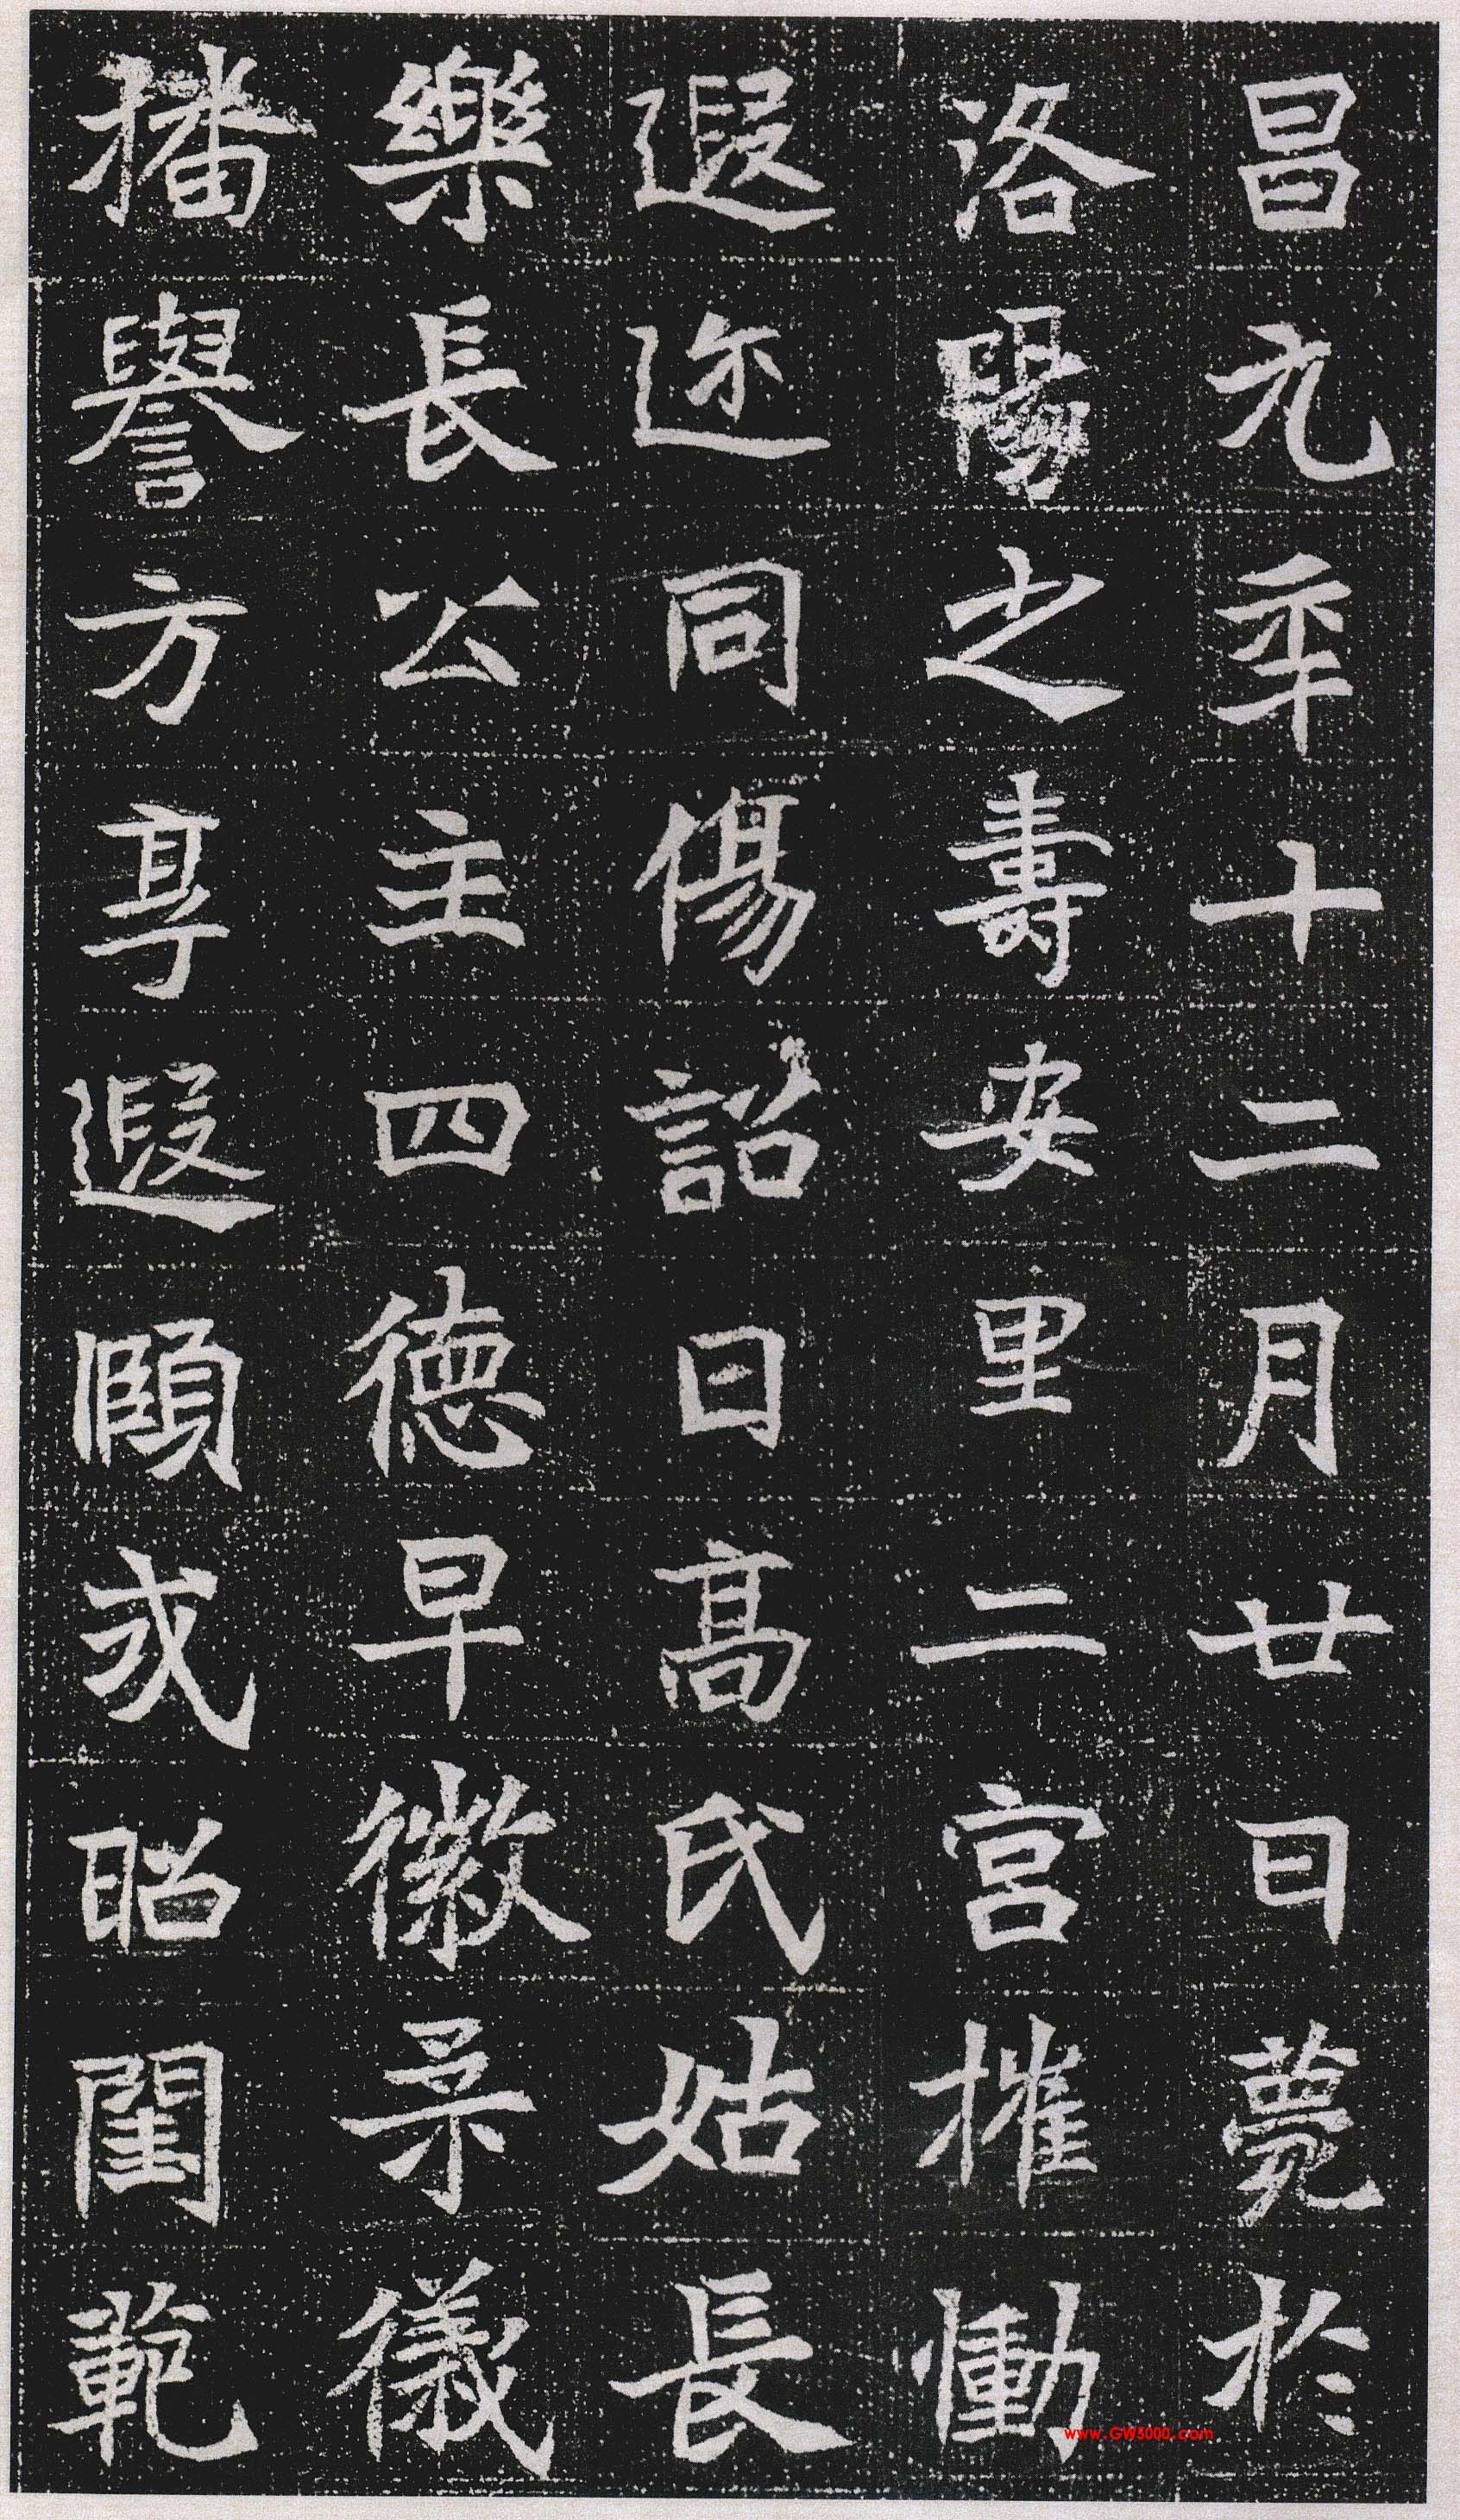 昌元年十二月廿日薨於
洛陽之壽安里二宮摧慟
遐迩同傷詔曰高氏姑長
樂長公主四德早徽柔儀
播譽方享遐頤式昭閨範
www.GW5000.com